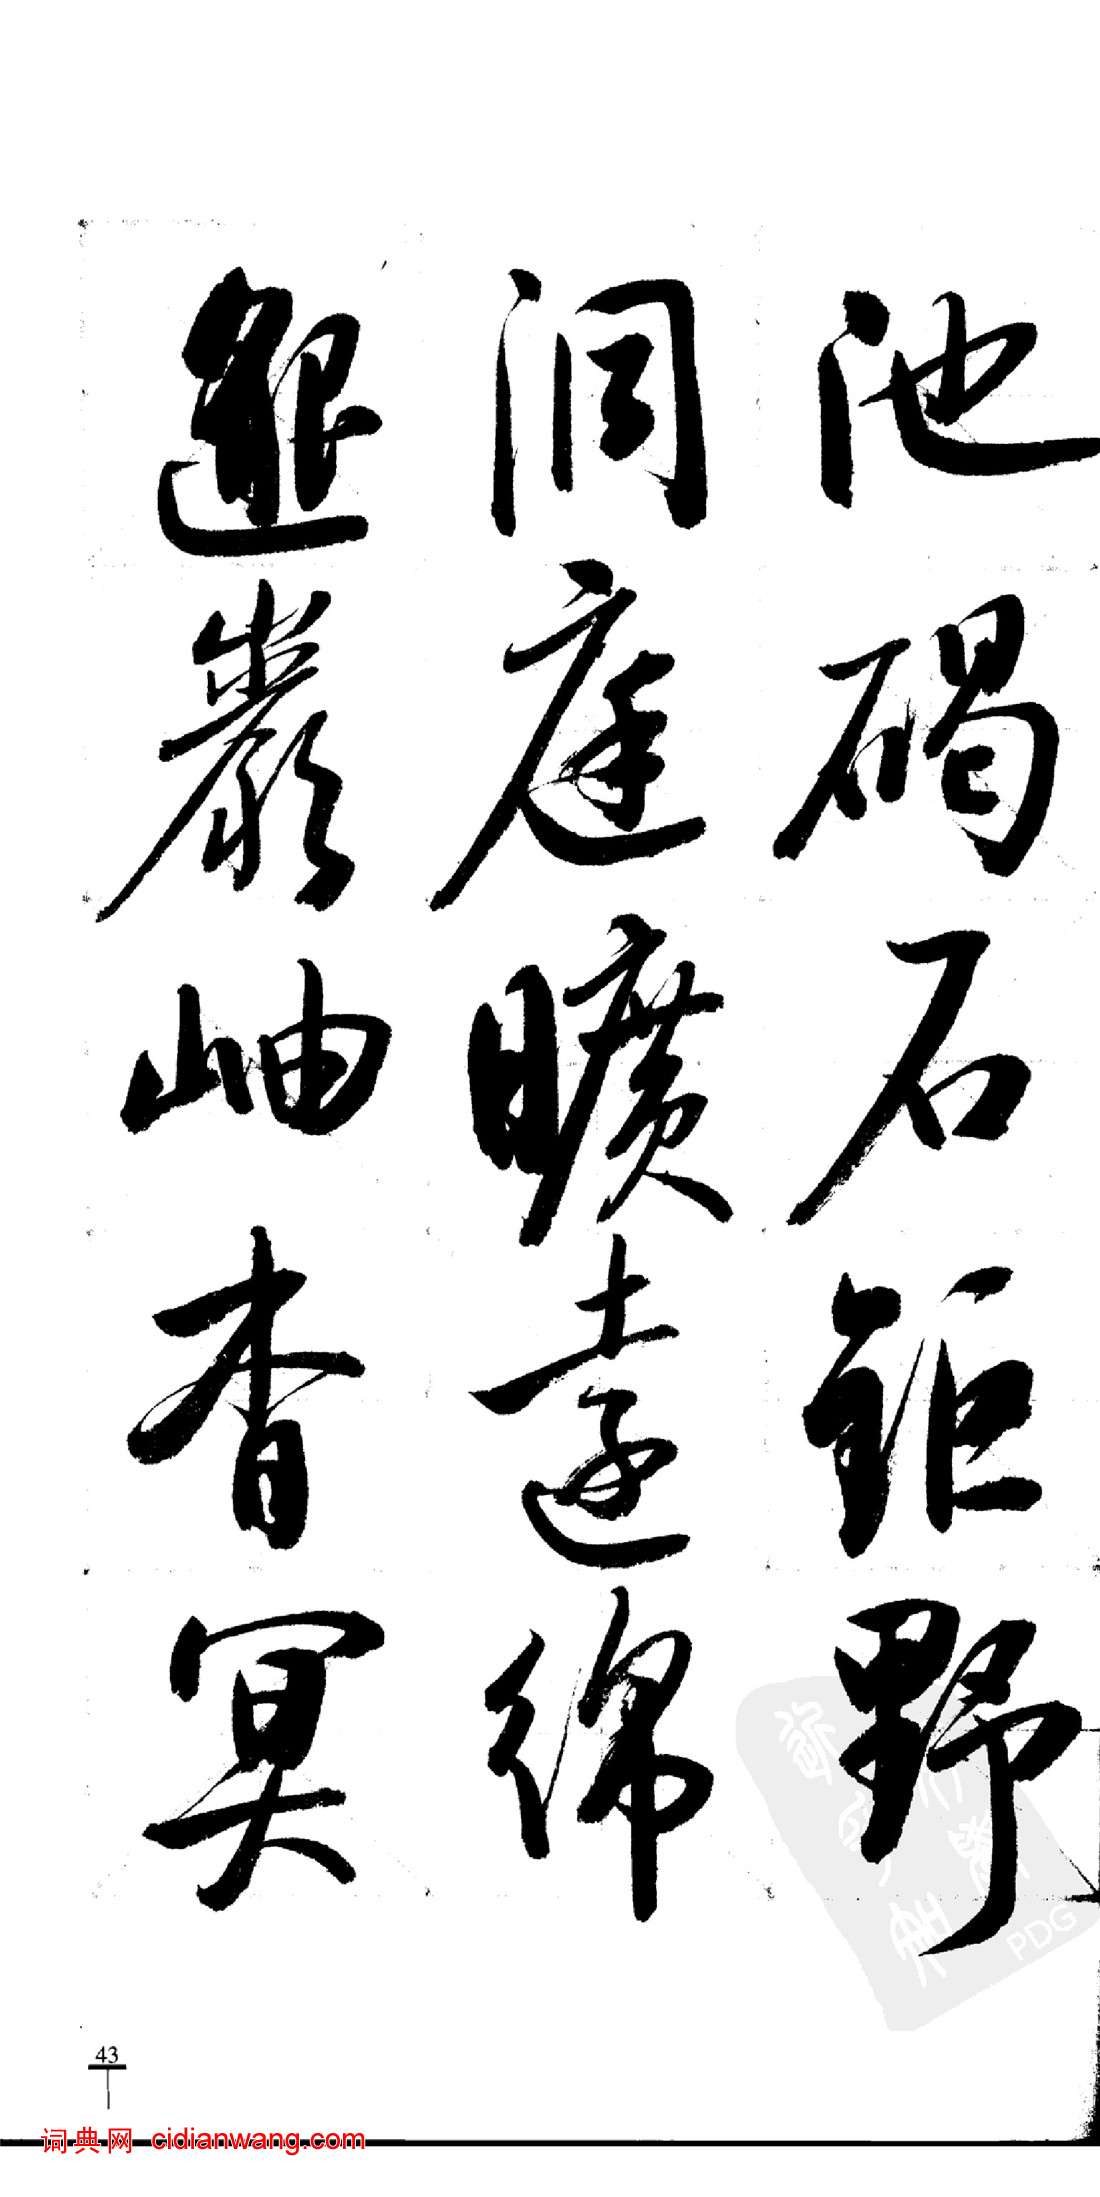 池碣石鉅野
洞庭曠遠綿
邈巖岫杳冥
43
词典网 cidianwang.com
PDG